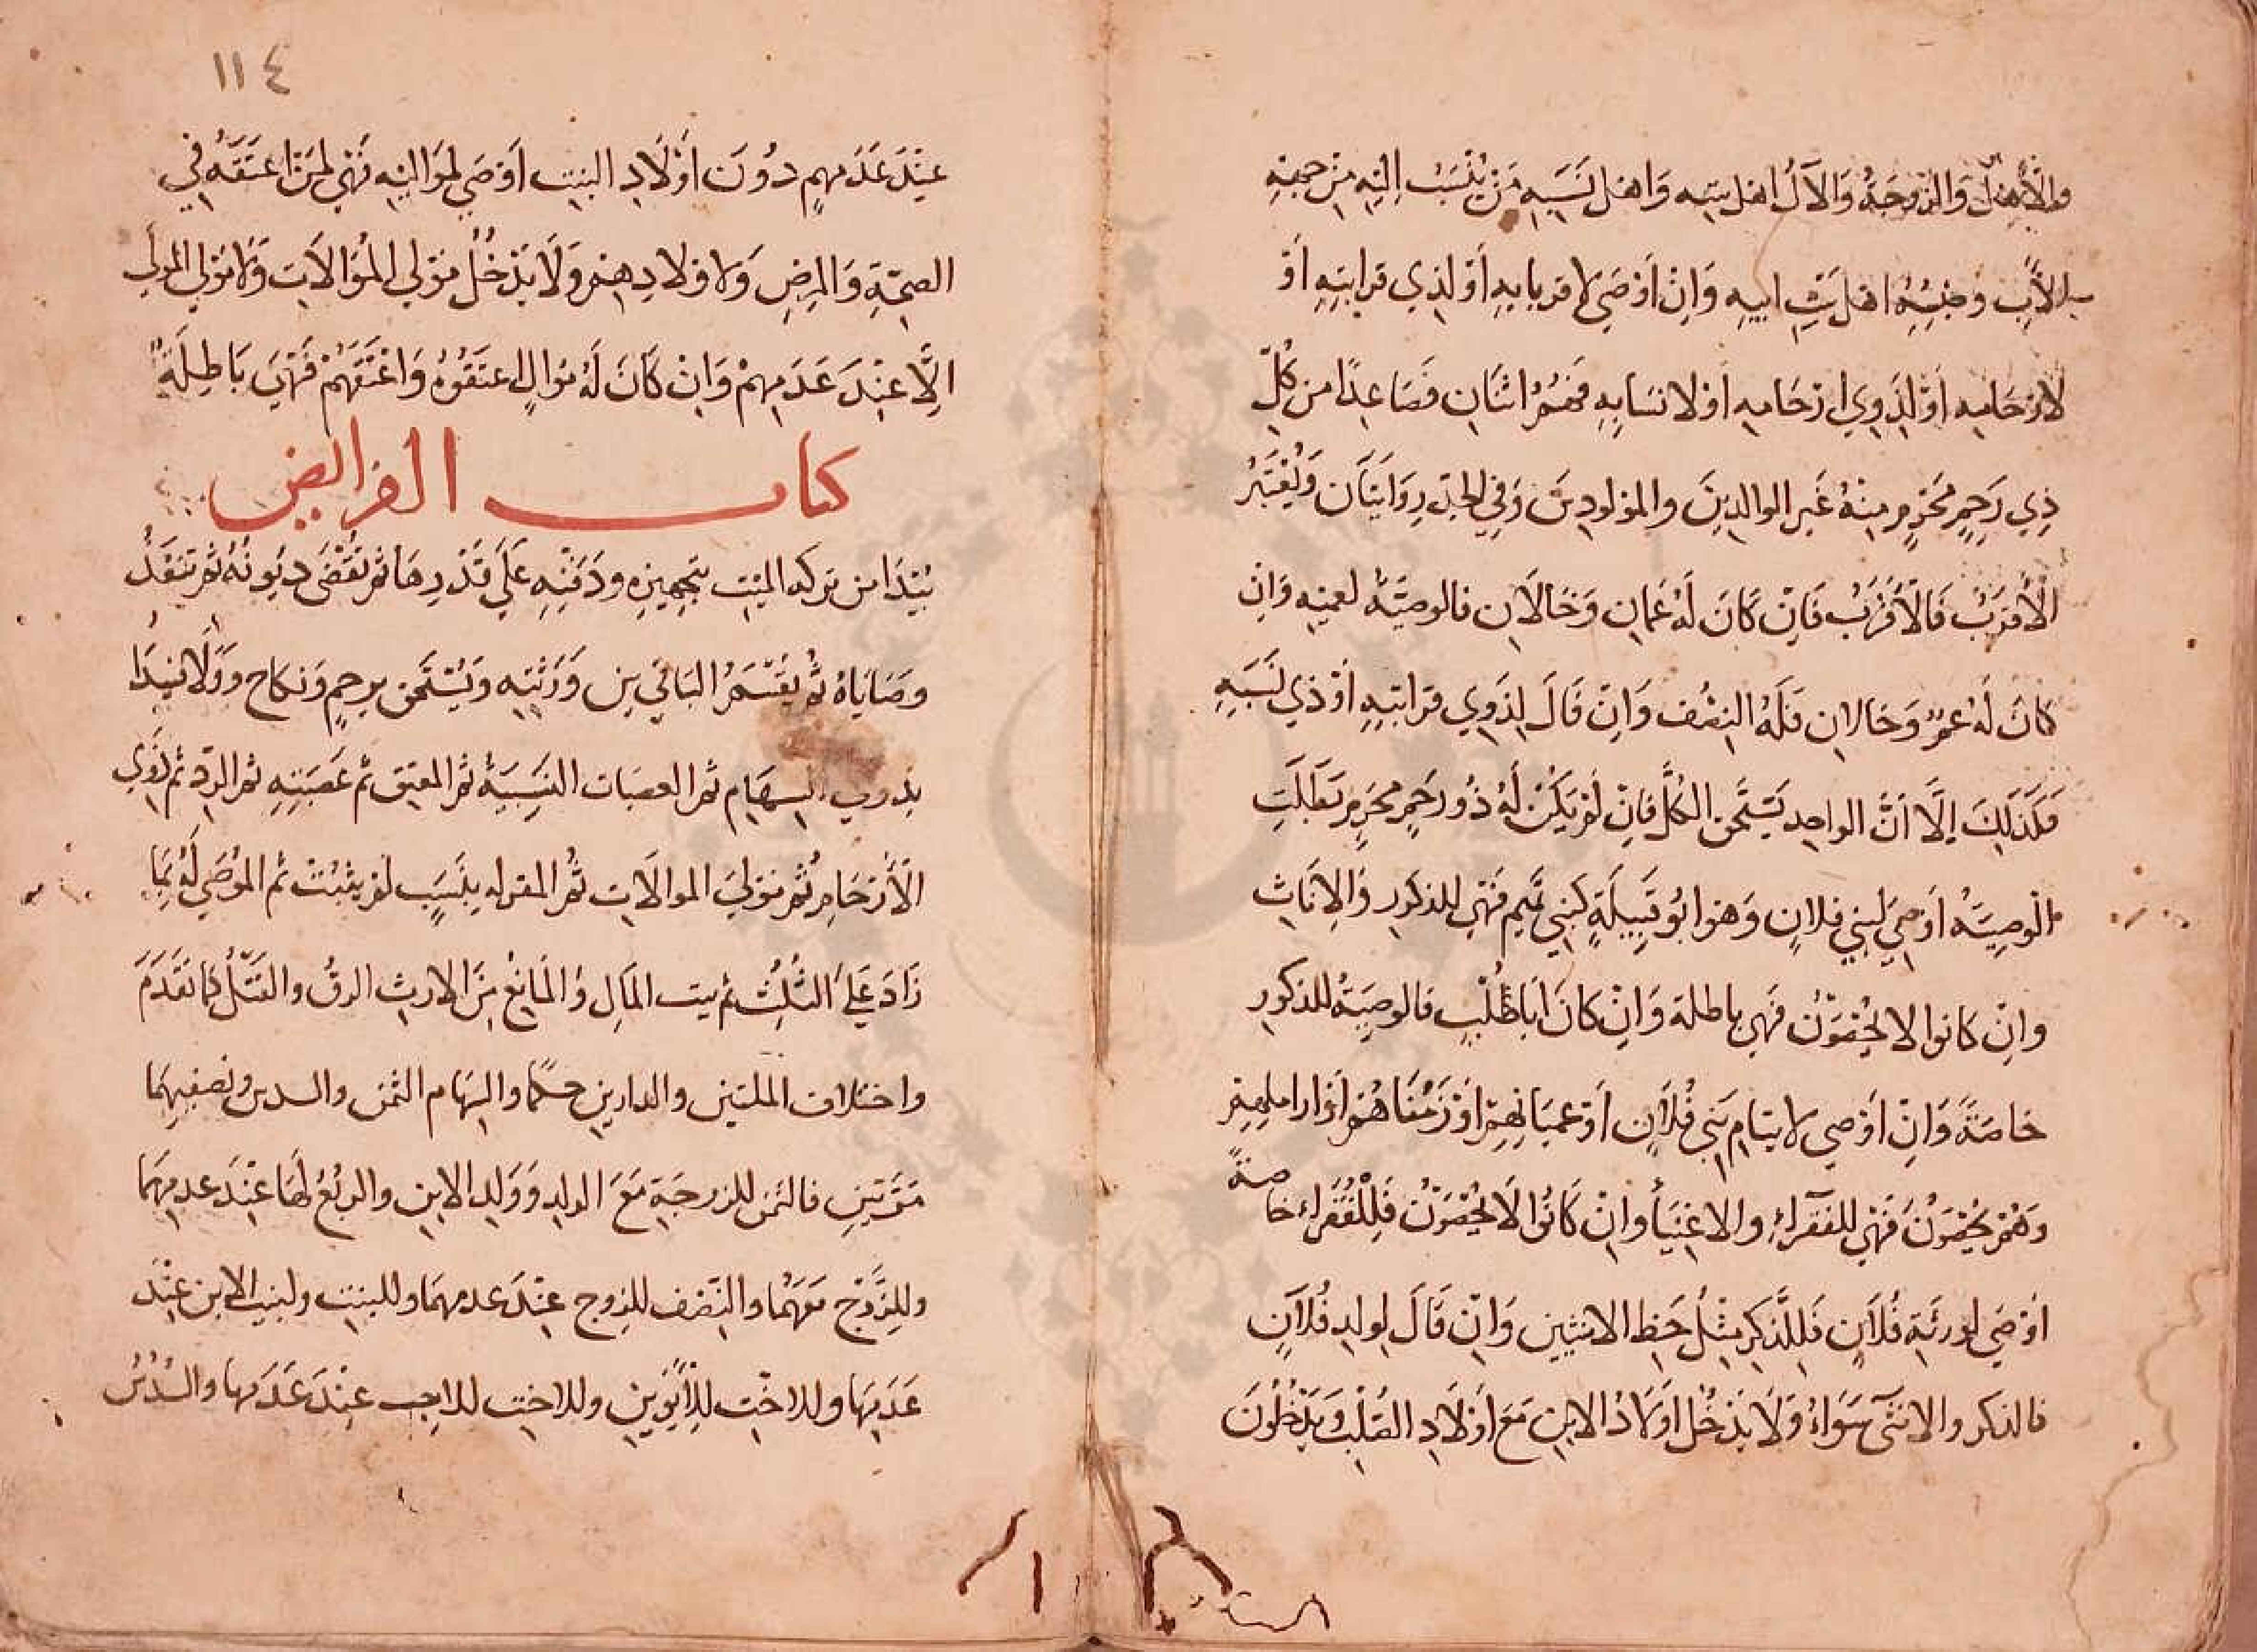 والأهل والزوجة والآل اهل بيته واهل نسبه من ينسب اليه من جهة
الأب وجنسه اهل بيت ابيه وان اوصى لاقربايه أو لذي قرابته او
لارحامه أو لذوي ارحامه او لانسابه فهم اثنان فصاعدا من كل
ذي رحم محرم منه غير الوالدين والمولودين وفي الجد روايتان ويعتبر
الأقرب فالأقرب فان كان له عمان وخالان فالوصية لعميه وان
كان له عم وخالان فله النصف وان قال لذوي قرابته أو ذي نسبه
فكذلك إلا ان الواحد يستحق الكل فان لم يكن له ذو رحم محرم بطلت
الوصية أوصى لبني فلان وهو ابو قبيلة كبني تميم فهي للذكور والاناث
وان كانوا لا يحصون فهي باطلة وان كان ابا صلب فالوصية للذكور
خاصة وان أوصى لايتام بني فلان أو عميانهم أو زمناهم أو اراملهم
وهم يحصون فهي للفقراء والاغنيا وان كانوا لا يحصون فللفقراء خاصة
اوصى لورثة فلان فللذكر مثل حظ الانثيين وان قال لولد فلان
فالذكر والانثى سواء ولا يدخل اولاد الابن مع اولاد الصلب ويدخلون
١١٤
عند عدمهم دون اولاد البنت أوصى لمواليه فهي لمن اعتقه في
الصحة والمرض ولاولادهم ولا يدخل مولى الموالات ولا مولى المولى
الا عند عدمهم وان كان له موال اعتقوه واعتقهم فهي باطلة
كتاب الفرايض
يبدا من تركه الميت بتجهيزه ودفنه على قدرها ثم تقضى ديونه ثم تنفذ
وصاياه ثم يقسم الباقي بين ورثته ويستحق برحم ونكاح وولا فيبدا
بذوي السهام ثم العصبات النسبية ثم المعتق ثم عصبته ثم الرد ثم ذوي
الأرحام ثم مولى الموالات ثم المقر له بنسب لم يثبت ثم الموصى له بما
زاد على الثلث ثم بيت المال والمانع من الارث الرق والقتل كما تقدم
واختلاف الملتين والدارين حكما والسهام الثمن والسدس ونصفيهما
مرتين فالثمن للزوجة مع الولد وولد الابن والربع لها عند عدمهما
وللزوج معهما والنصف للزوج عند عدمهما وللبنت ولبنت الابن عند
عدمها وللاخت للأبوين وللاخت للاب عند عدمها والسدس